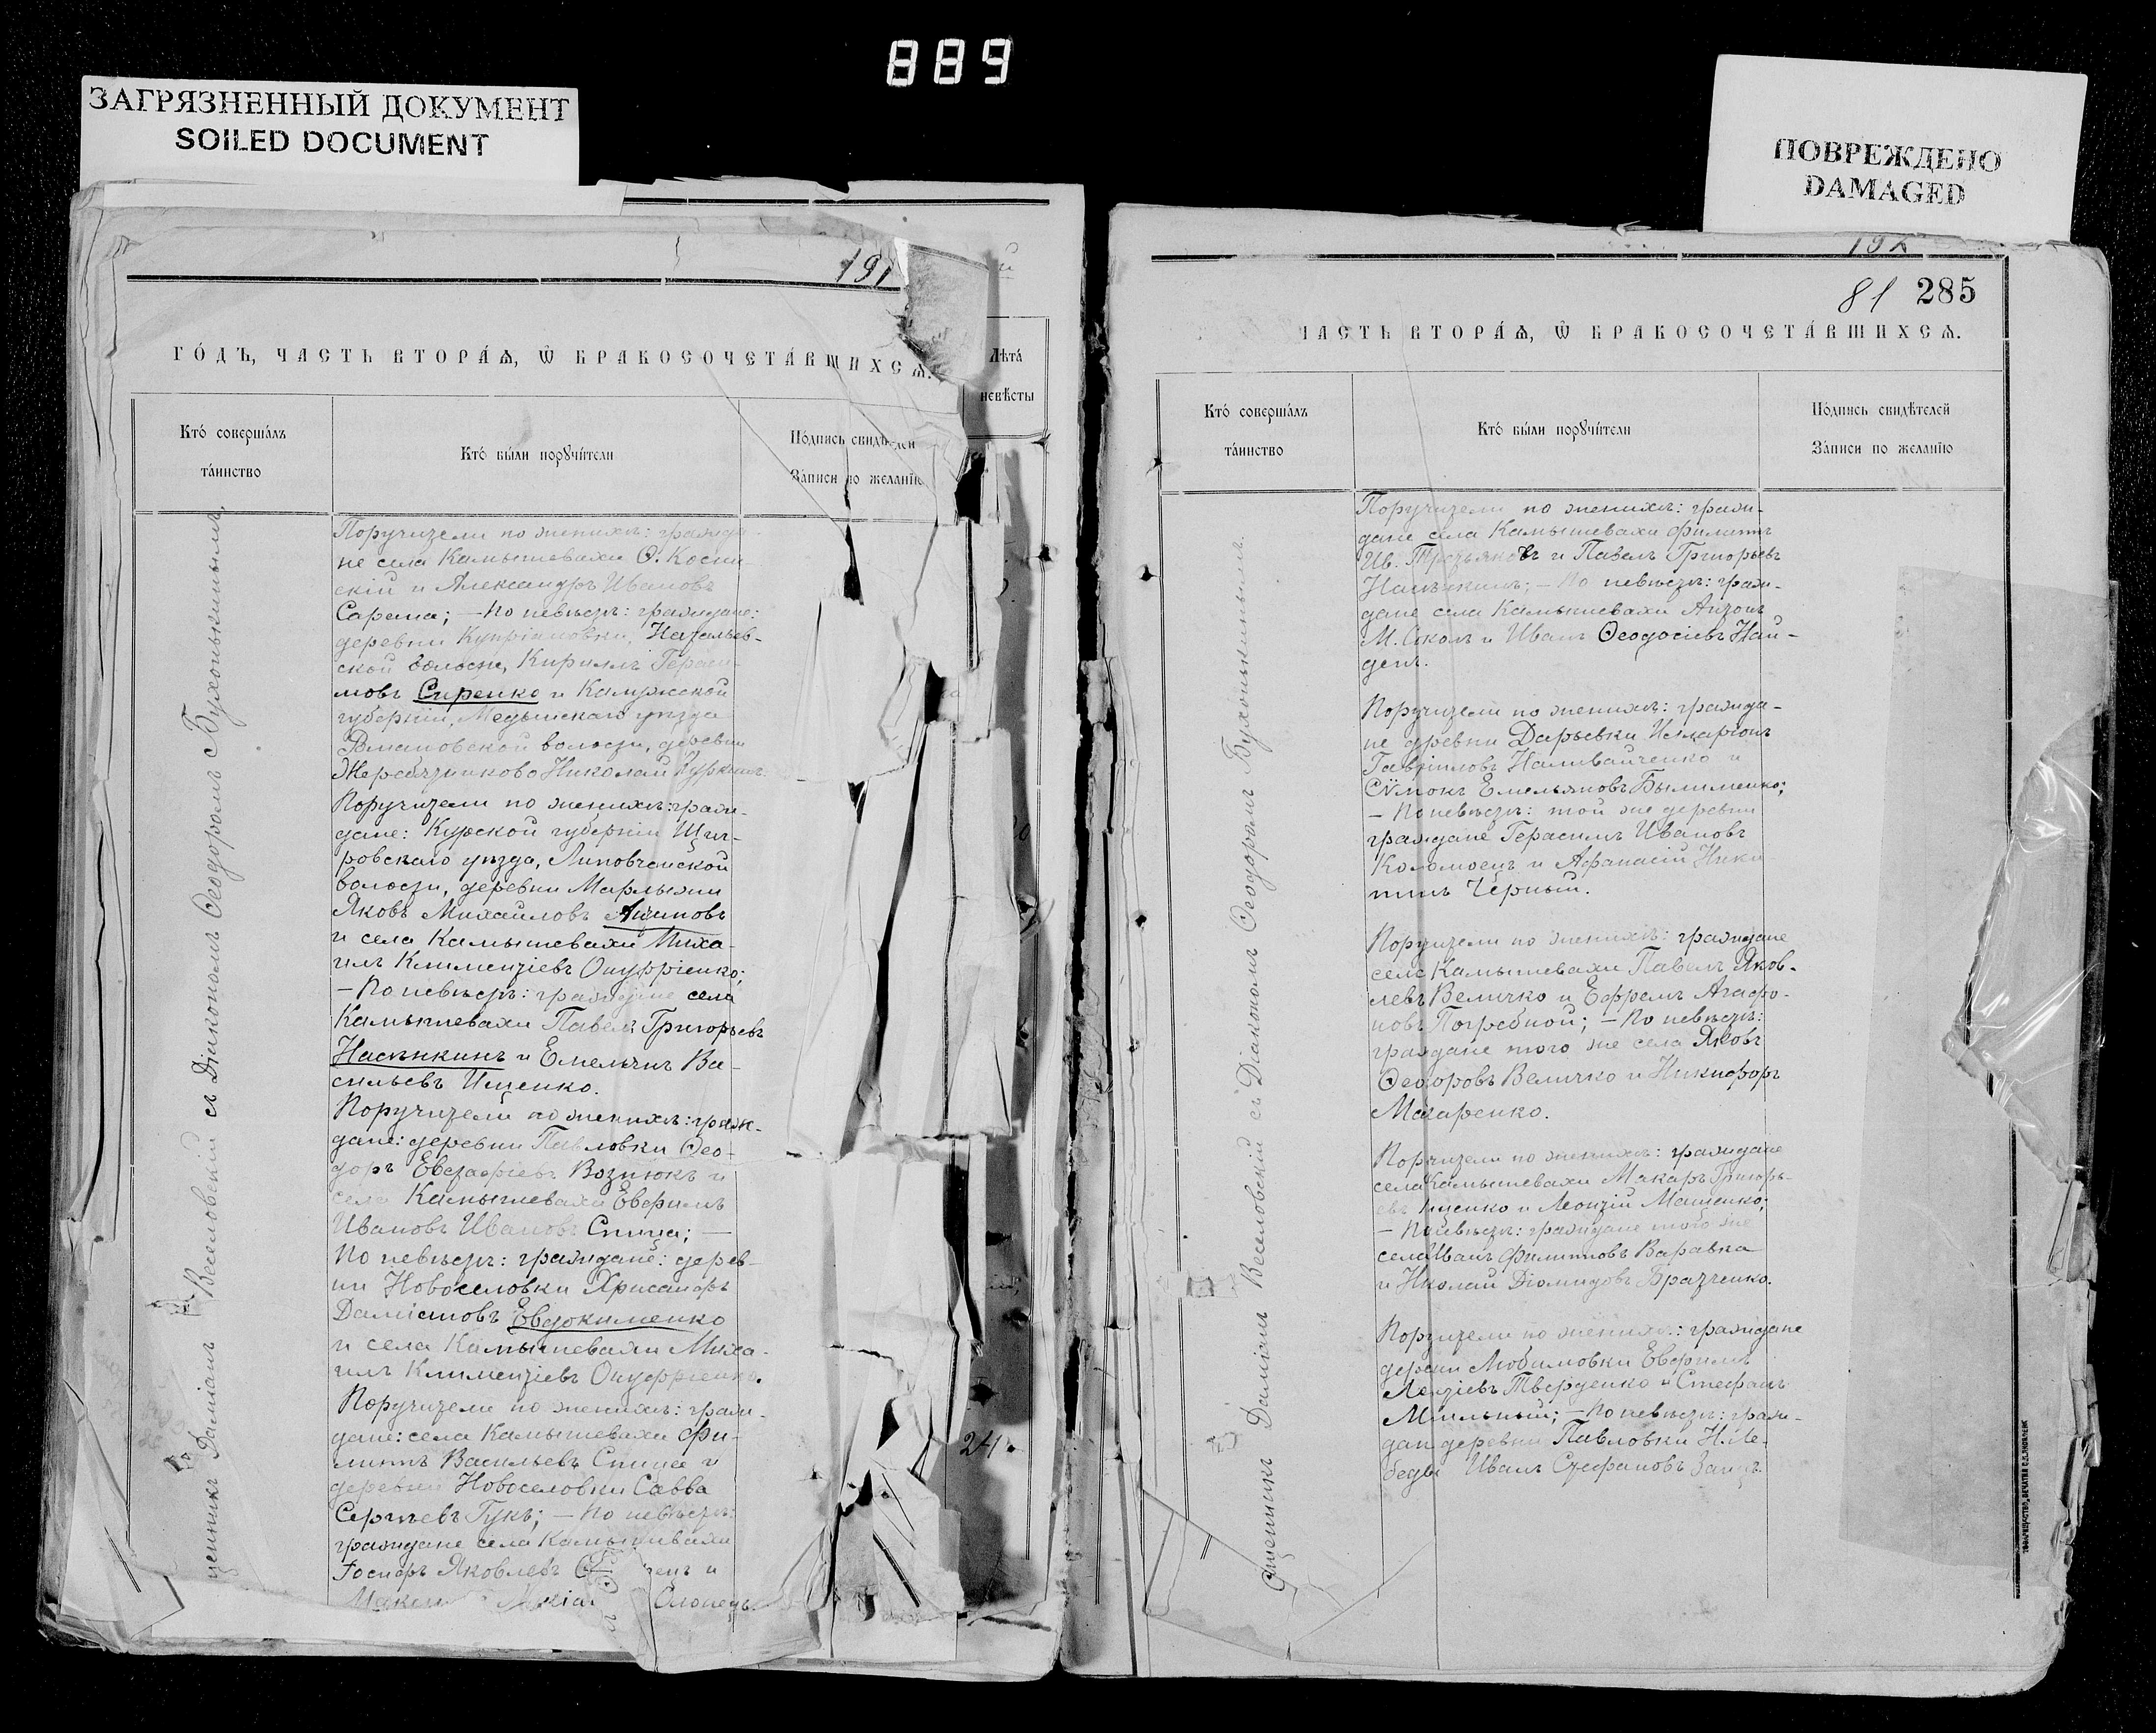 889
ЗАГРЯЗНЕННЫЙ ДОКУМЕНТ
SOILED DOCUMENT
ПОВРЕЖДЕНО
DAMAGED
191
ГО́ДЪ, ЧАСТЬ ВТОРА́Ѧ, Ѿ БРАКОСОЧЕТА́ВШИХСѦ.
Лѣта́
невѣсты
Кто́ соверша́лъ
та́инство
Кто́ бы́ли порꙋчи́тели
По́дпись свидѣ́телей
За́писи по жела́нїю
Веселовскій съ Діакономъ Ѳеодоромъ Бухонькинымъ.
Даміанъ
Поручители по женихѣ: гражда-
не села Камышевахи Ѳ. Косин
скій и Александръ Ивановъ
Сарана; — По невѣстѣ: граждане:
деревни Купріяновки, Натальев-
ской волости, Кириллъ Гераси-
мовъ Сиренко и Калужской
губерніи, Медынскаго уѣзда
Романовской волости, деревни
Жеребятниково Николай Куркинъ.
Поручители по женихѣ: граж-
дане: Курской губерніи Щиг-
ровскаго уѣзда, Липовчанской
волости, деревни
Яковъ Михайловъ Анановъ
и села Камышевахи Миха-
илъ Климентіевъ Онуфріенко;
— По невѣстѣ: граждане села
Камышевахи Павелъ Григорьевъ
Насѣнкинъ и Емельянъ Ва-
сильевъ Ищенко.
Поручители по женихѣ: граж-
дане: деревни Павловки Ѳео-
доръ Евстафіевъ Вознюкъ и
села Камышевахи Евфимъ
Ивановъ Ивановъ Спица; —
По невѣстѣ: граждане: дерев-
ни Новоселовки Хрисанфъ
Даміановъ Евдокименко
и села Камышевахи Миха-
илъ Климентіевъ Онуфріенко.
Поручители по женихѣ: граж-
дане: села Камышевахи Фи-
липпъ Васильевъ Спица и
деревни Новоселовки Савва
Сергѣевъ Гукъ; — По невѣстѣ:
граждане села Камышевахи
Іосифъ Яковлевъ
24
81 285
ЧАСТЬ ВТОРА́Ѧ, Ѿ БРАКОСОЧЕТА́ВШИХСѦ.
Кто́ соверша́лъ
та́инство
Кто́ бы́ли порꙋчи́тели
По́дпись свидѣ́телей
За́писи по жела́нїю
Священникъ Даміанъ Веселовскій съ Діакономъ Ѳеодоромъ Бухонькинымъ.
Поручители по женихѣ: граж-
дане села Камышевахи Филиппъ
Ив. Третьяковъ и Павелъ Григорьевъ
Насѣнкинъ; — По невѣстѣ: граж-
дане села Камышевахи Антонъ
М. Соколъ и Иванъ Ѳеодосіевъ Най-
денъ.
Поручители по женихѣ: гражда-
не древни Дарьевки Иларіонъ
Гавріиловъ Наливайченко и
Сѵмонъ Емельяновъ Былименко;
— По невѣстѣ: той же деревни
граждане Герасимъ Ивановъ
Коломоецъ и Афанасій Ники-
тинъ Чёрный.
Поручители по женихѣ: граждане
села Камышевахи Павелъ Яков-
левъ Величко и Ефремъ Агафо-
новъ Погребной; — По невѣстѣ:
граждане того же села Яковъ
Ѳеодоровъ Величко и Никифоръ
Макаренко.
Поручители по женихѣ: граждане
села Камышевахи Макаръ Григорь-
евъ Ищенко и Леонтій Мащенко;
— По невѣстѣ: граждане того же
села Иванъ Филипповъ Варавка
и Николай Діомидовъ Братченко.
Поручители по женихѣ: граждане
деревни Любимовки Евфимъ
Леонтіевъ Тверденко и Стефанъ
Мыльный; — По невѣстѣ: граж-
дан деревни Павловки Н. Ле-
бедь Иванъ Стефановъ Заяцъ.